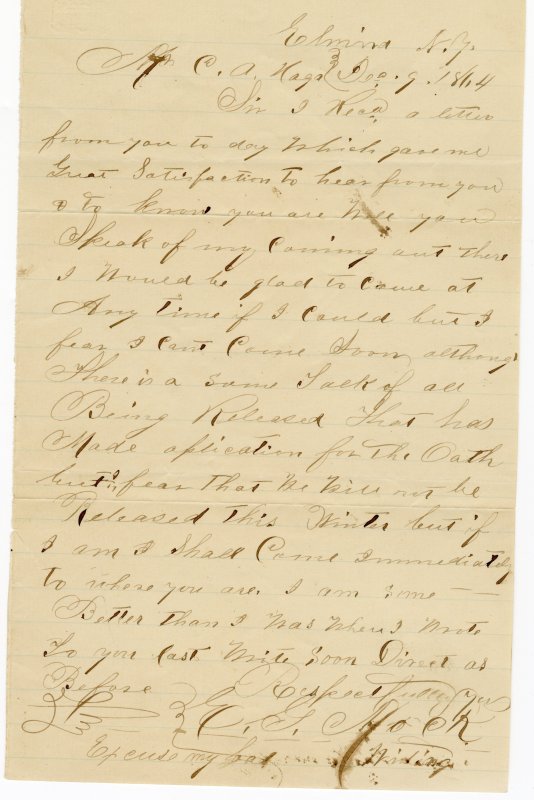 Elmira N.Y.
Mr C. A. Haga Dec. 9. 1864
Sir I Recd a letter
from you to day which gave me
Great Satisfaction to hear from you
& to know you are Well you
Speak of my Coming out there
I Would be glad to Come at
Any time if I Could but I
fear I Cant Come Soon, although
There is a Some Talk of all
Being Released That has
Made aplication for The Oath
but I fear that We Will not be
Released this Winter but if
I am I Shall Come immediately
to where you are. I am Some
Better than I Was When I Wrote
To you last Write Soon Direct as
Before Respectfully Yrs
Hock
Excuse my bad Writing